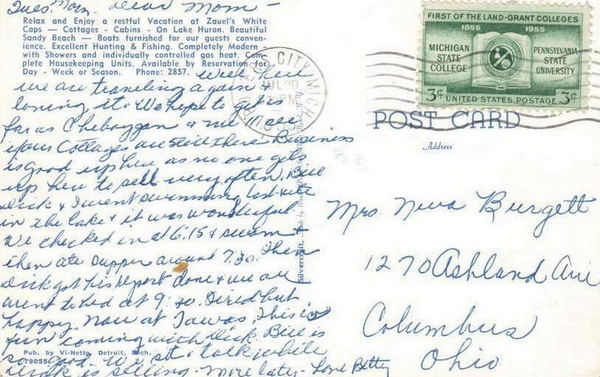 Tues. Morn. Dear Mom -
Relax and Enjoy a restful Vacation at Zauel's White
Caps — Cottages - Cabins - On Lake Huron. Beautiful
Sandy Beach — Boats furnished for our guests conven-
ience. Excellent Hunting & Fishing. Completely Modern -
with Showers and individually controlled gas heat. Com-
plete Housekeeping Units. Available by Reservation for
Day - Week or Season. Phone: 2857.
Well here
we are traveling again &
loving it. We hope to get as
far as Cheboygan & me
if our Cottages are still there. Business
is good up here as no one gets
up here to sell very often. Bill
Dick & I went swimming last nite
in the lake & it was wonderful
We checked in at 6:15 & swam &
then ate supper around 7:30. Then
Dick got his report done & we all
went to bed at 9:30. Tired but
happy. Now at Tawas. This is
fun coming with Dick. Bill is
so good. We sit & talk while
Dick is selling. More later - Love Betty
Pub. by Vi-Netto, Detroit, Mich.
79055
CITY, MICH.
JUL 20
PM
FIRST OF THE LAND-GRANT COLLEGES
1855 1955
MICHIGAN STATE COLLEGE
PENNSYLVANIA STATE UNIVERSITY
3¢ UNITED STATES POSTAGE 3¢
POST CARD
Address
Mrs. Neva Burgett
1270 Ashland Ave
Columbus
Ohio